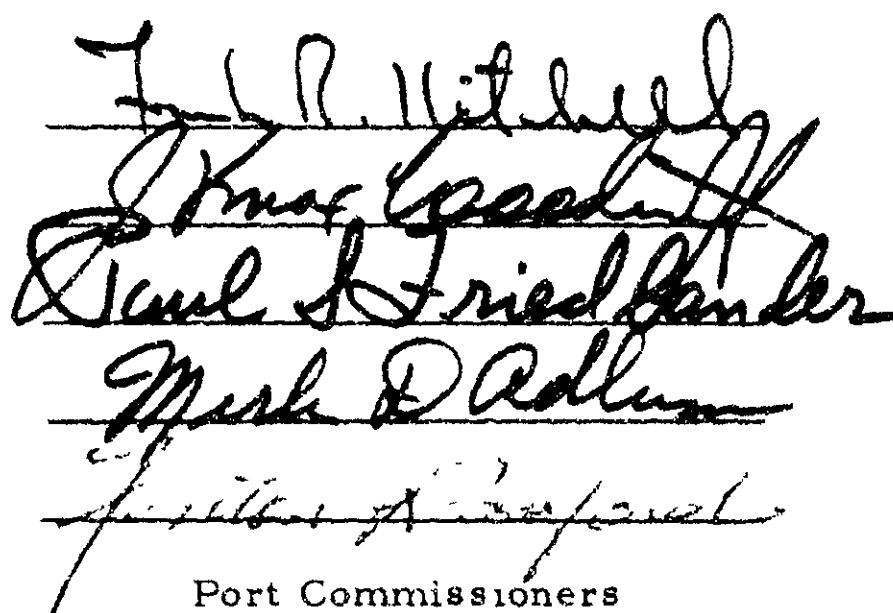 Frank R. Kitchell
J Knox Woodruff
Paul S Friedlander
Merle D Adlum
Port Commissioners